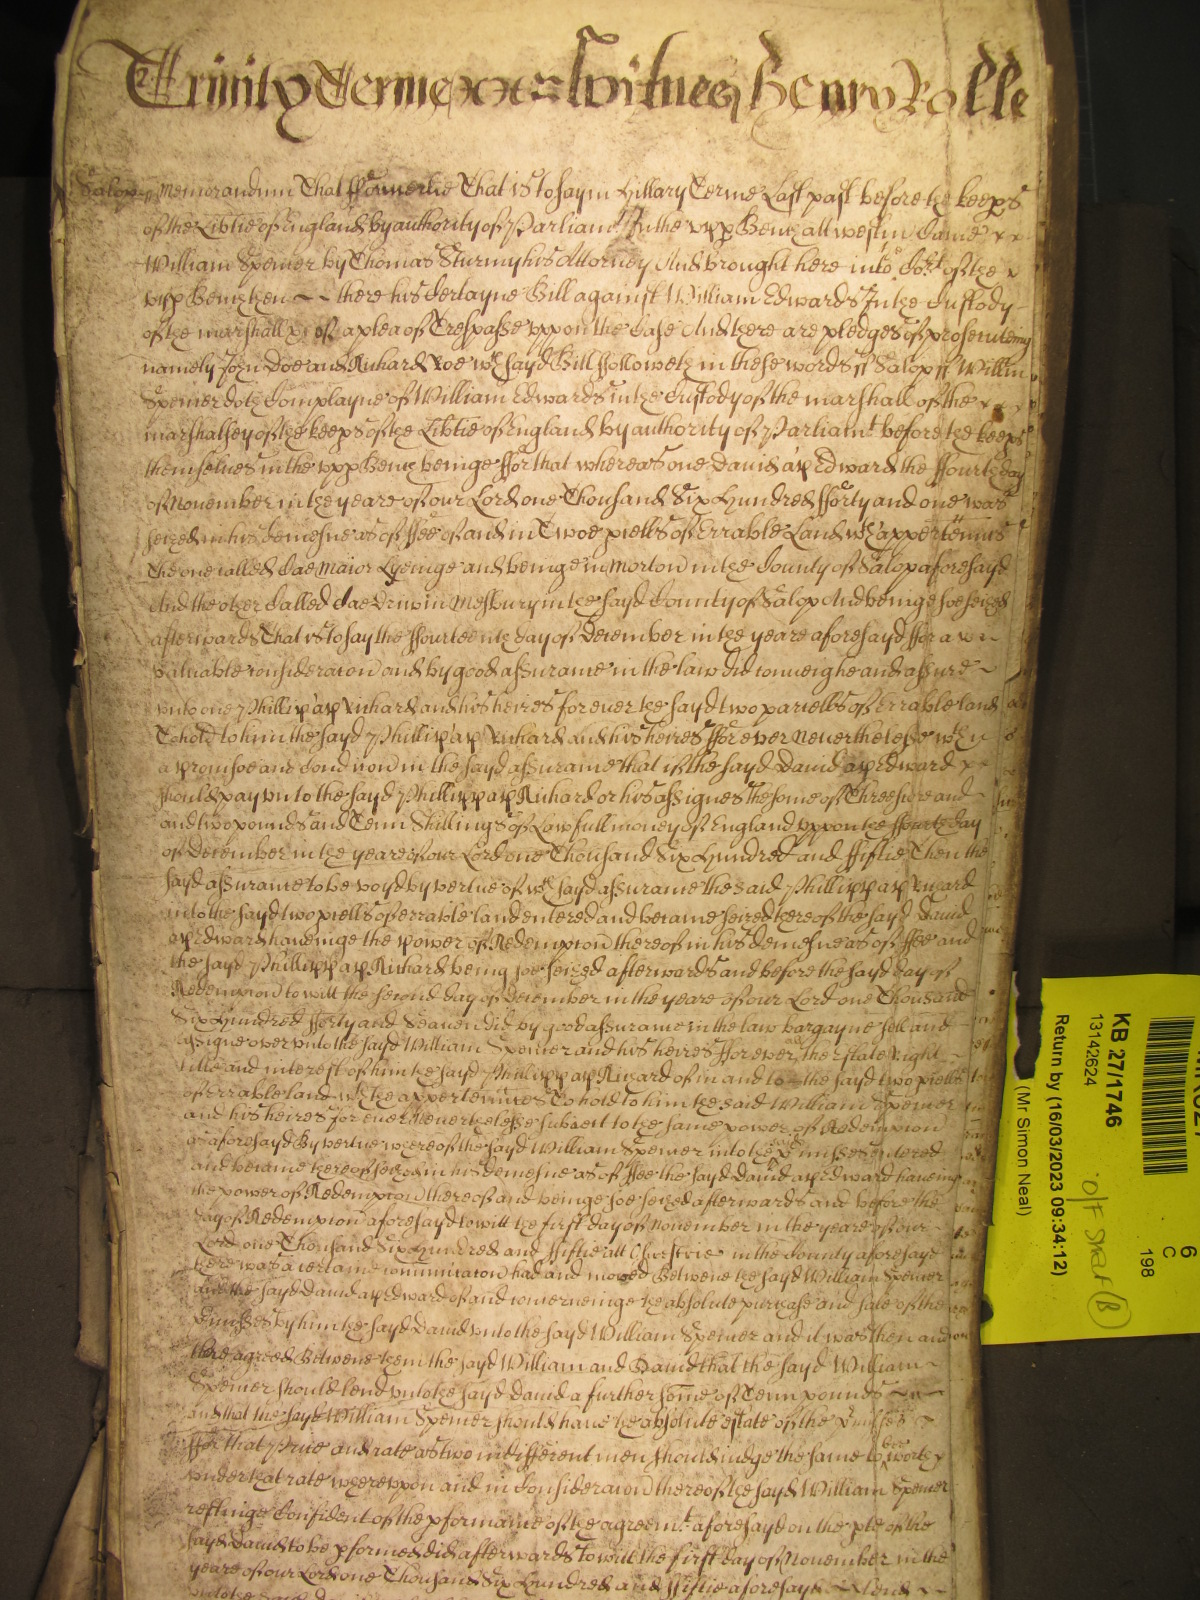 Trinity Terme Witnes Henry Rolle
Salop ss Memorandum That fformerlie That is to say in Hillary Terme Last past before the keeps
of the Libtie of England by authority of Parliamt In the vpp Bench att westm Came
William Spencer by Thomas Sturmy his Attorney And brought here into the Cort of the
vpp Bench then there his Certayne Bill against William Edwards In the Custody
of the marshall &c of a plea of Trespasse vppon the Case And there are pledges of prosecuteing
namely John Doe and Richard Roe wch sayd Bill ffolloweth in these words ss Salop ss Willm
Spencer doth Complayne of William Edwards in the Custody of the marshall of the
marshalsey of the keeps of the Libtie of England by authority of Parliamt before the keeps
themselues in the vpp Bench beinge ffor that whereas one Dauid ap Edward the ffourth day
of Nouember in the yeare of our Lord one Thousand Six Hundred fforty and one was
seized in his demesne as of ffee of and in Twoe pcells of Errable Land wth appertenncs
The one called Cae Maior Lyeinge and beinge in Morton in the County of Salop aforesayd
And the other Called Cae in Mesbury in the sayd County of Salop And beinge soe seized
afterwards That is to say the ffourteenth day of December in the yeare aforesayd ffor a
valuable consideracon and by good assurance in the law did conueighe and assure
vnto one Phillip ap Richard and his heires for euer the sayd two parcells of Errable land
To hold to him the sayd Phillip ap Richard and his heires ffor euer Neuerthelesse wth
a prouisoe and Condicon in the sayd assurance that if the sayd Dauid ap Edward
should pay vnto the sayd Phillipp ap Richard or his assignes the some of Threescore and
and two pounds and Tenn Shillings of Lawfull money of England vppon the ffourth day
of December in the yeare of our Lord one Thousand Six Hundred and ffiftie Then the
sayd assurance to be voyd by vertue of wch sayd assurance the said Phillipp ap Richard
into the sayd two pcells of errable land entered and became seized thereof the sayd Dauid
ap Edward haueinge the power of Redempcon thereof in his demesne as of ffee and
the sayd Phillipp ap Richard being soe seized afterwards and before the sayd day of
Redempcon to witt the second day of December in the yeare of our Lord one Thousand
Six Hundred fforty and Seauen did by good assurance in the law bargayne sell and
assigne ouer vnto the sayd William Spencer and his heires ffor euer the Estate Right
title and interest of him the sayd Phillipp ap Richard of in and to the sayd two pcells
of errable land wth the appertennces To hold to him the said William Spencer
and his heires for euer Neuerthelesse subiect to the same power of Redempcon
as aforesayd By vertue whereof the sayd William Spencer into the sayd pmisses entered
and became thereof seized in his demesne as of ffee the sayd Dauid ap Edward haueing
the power of Redempcon thereof and beinge soe seized afterwards and before the
day of Redempcon aforesayd to witt the first day of Nouember in the yeare of our
Lord one Thousand Six Hundred and ffiftie att Oswestrie in the County aforesayd
there was a certaine comunicacon had and moued Betwene the sayd William Spencer
and the sayd Dauid ap Edward of and concerneinge the absolute purchase and sale of the
pmisses by him the sayd Dauid vnto the sayd William Spencer and it was then and
there agreed Betwene them the sayd William and Dauid that the sayd William
Spencer should lend vnto the sayd Dauid a further some of Tenn pounds
and that the sayd William Spencer should haue the absolute estate of the pmisses
ffor that Price and rate as two indifferent men should iudge the same to bee worth
vnder that rate wherevpon and in Consideracon thereof the sayd William Spencer
resting Confident of the pformance of the agreemt aforesayd on the pte of the
sayd Dauid to be pformed did afterwards to witt the first day of Nouember in the
yeare of our Lord one Thousand Six Hundred and ffiftie aforesayd lend
KB 27/1746
13142624
Return by (16/03/2023 09:34:12)
(Mr Simon Neal)
6
C
198
B